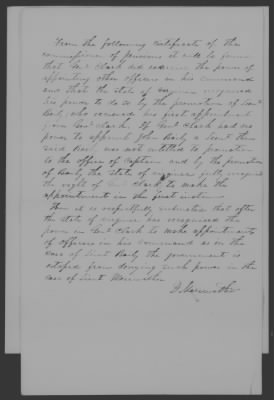 From the following certificate of the
commissioner of pensions it will be found
that Genl Clark did exercise the power of
appointing other officers in his command
and that the state of Virginia recognised
his power to do so by the promotion of Lieut
Baily, who received his first appointment
from Genl Clark. If Genl Clark had no
power to appoint John Baily a Lieut then
said Baily was not entitled to promotion
to the office of Captain and by the promotion
of Baily the state of Virginia fully recognised
the right of Genl Clark to make the
appointment in the first instance
Then it is respectfully submitted that after
the state of Virginia has recognised the
power in Genl Clark to make appointments
of officers in his command as in the
case of Lieut Baily the government is
estoped from denying such power in the
case of Lieut Merriwether
D Merriwether